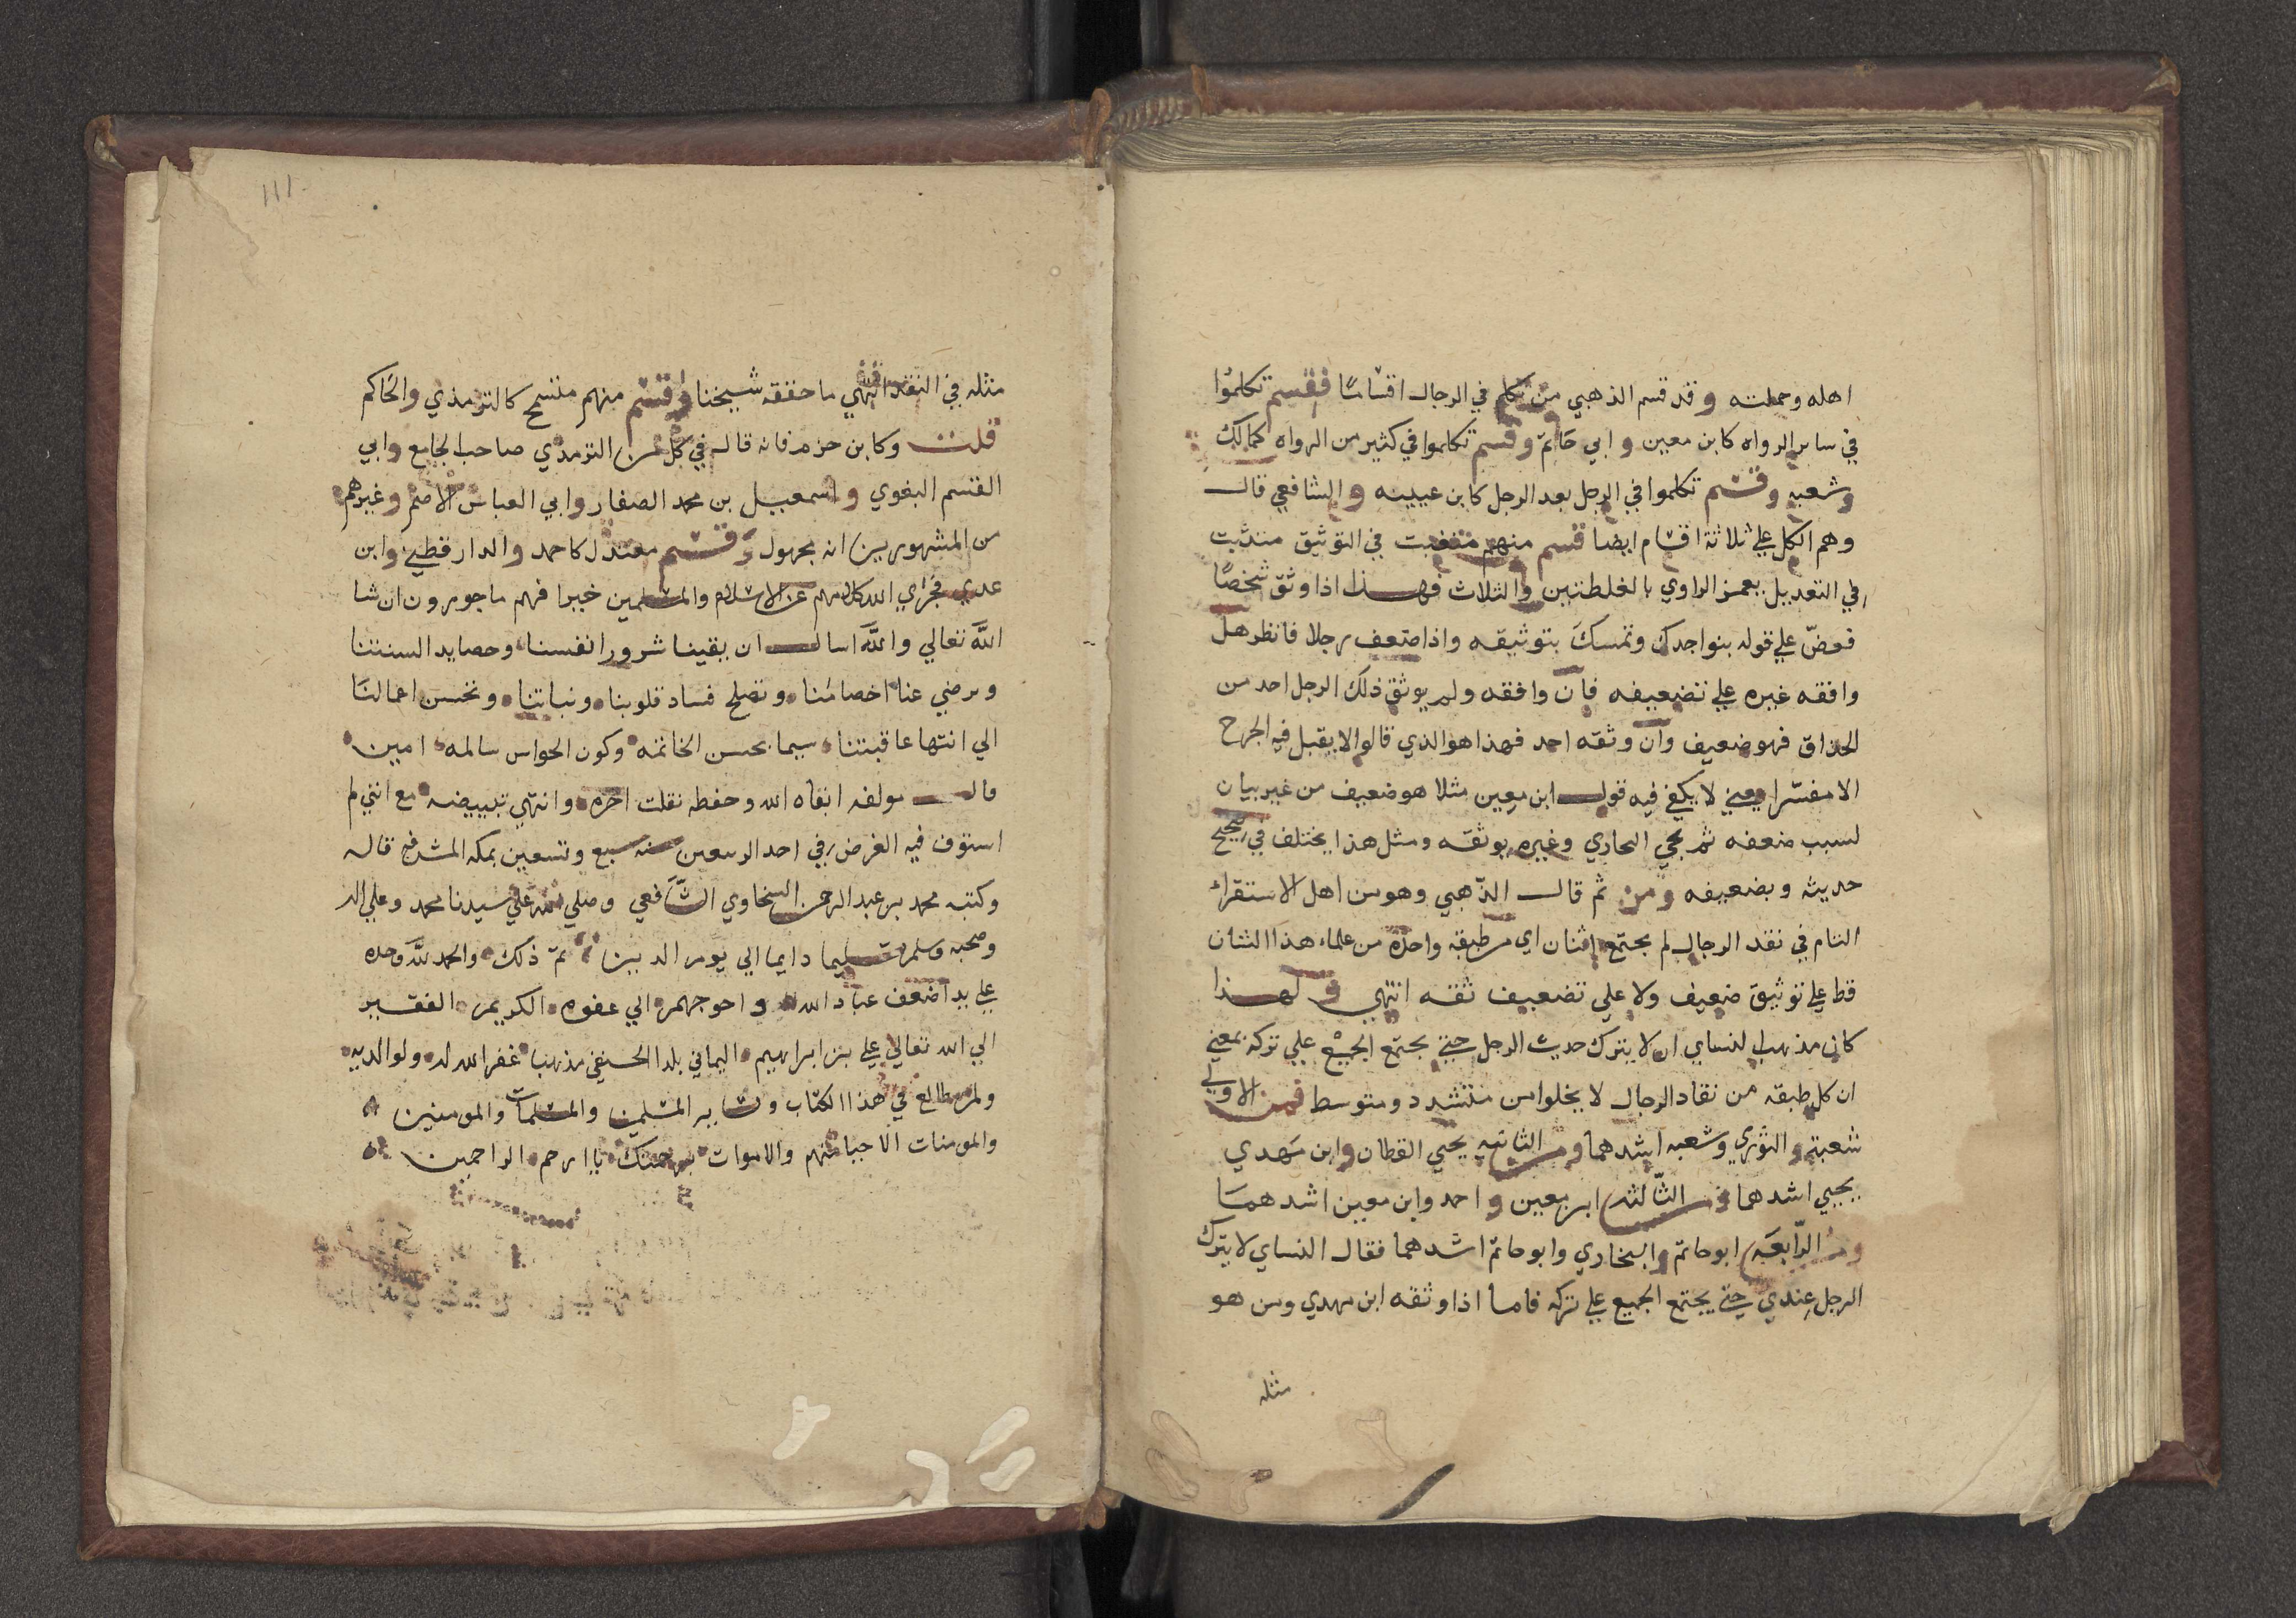 اهله وحملته وقد قسم الذهبي من تكلم في الرجال اقسامًا فقسم تكلموا
في سائر الرواه كابن معين وابي حاتم وقسم تكلموا في كثير من الرواه كمالك
وشعبه وقسم تكلموا في الرجل بعد الرجل كابن عيينه والشافعي قال
وهم الكل علي ثلاثة اقسام ايضا قسم منهم متعنت في التوثيق متثبت
في التعديل يغمز الراوي بالغلطتين والثلاث فهذا اذا وثق شخصًا
فعضّ علي قوله بنواجدك وتمسك بتوثيقه واذا ضعف رجلا فانظر هل
وافقه غيره علي تضعيفه فان وافقه ولم يوثق ذلك الرجل احد من
الحذاق فهو ضعيف وان وثقه احد فهذا هو الذي قالوا لا يقبل فيه الجرح
الا مفسّرا يعني لا يكفي فيه قول ابن معين مثلا هو ضعيف من غير بيان
لسبب ضعفه ثم يجي البخاري وغيره يوثقه ومثل هذا يختلف في تصحيح
حديثه وتضعيفه ومن ثم قال الذّهبي وهو من اهل الاستقراء
التام في نقد الرجال لم يجتمع اثنان اي من طبقة واحدة من علماء هذا الشان
قط علي توثيق ضعيف ولا علي تضعيف ثقه انتهي ولهذا
كان مذهب النساي ان لا يترك حديث الرجل حتي يجتمع الجميع علي تركه يعني
ان كل طبقه من نقاد الرجال لا يخلوا من متشدد ومتوسط فمن الاولي
شعبة والثوري وشعبه اشدهما ومن الثانيه يحيي القطان وابن مهدي
يحيي اشدهما ومن الثّالثه ابن معين واحمد وابن معين اشدهما
ومن الرّابعَه ابو حاتم والبخاري وابو حاتم اشدهما فقال النساي لا يترك
الرجل عندي حتي يجتمع الجميع علي تركه فاما اذا وثقه ابن مهدي ومن هو
مثله
111
مثله في النقد انتهي ما حققه شيخنا وقسم منهم متسمح كالترمذي والحاكم
قلت وكابن حزم فانه قال في كل من الترمذي صاحب الجامع وابي
القسم البغوي واسمعيل بن محمد الصفار وابي العباس الاصم وغيرهم
من المشهورين انه مجهول وقسم معتدل كاحمد والدارقطني وابن
عدي فجزي الله كلا منهم عن الاسلام والمسلمين خيرا فهم ماجورون ان شا
اللّه تعالي واللّه اسال ان يقينا شرور انفسنا وحصايد السنتنا
ويرضي عنا اخصامنا ويصلح فساد قلوبنا ونياتنا ويحسن اعمالنا
الي انتها عاقبتنا سيما بحسن الخاتمه وكون الحواس سالمه امين
قال مولفه ابقاه الله وحفظه نقلت اخره وانتهي تبييضه مع انني لم
استوف فيه الغرض في احد الربيعين سنه سبع وتسعين بمكه المشرفه قاله
وكتبه محمد بن عبد الرحمن السخاوي الشافعي وصلي الله علي سيدنا محمد وعلي اله
وصحبه وسلم تسليما دايما الي يوم الدين تمّ ذلك والحمد للّه وحده
علي يد اضعف عباد الله واحوجهم الي عفوه الكريم الفقير
الي الله تعالي علي بن ابراهيم اليماني بلدا الحنفي مذهبا غفر الله له ولوالديه
ولمن طالع في هذا الكتاب وساير المسلمين والمسلمات والمومنين
والمومنات الاحيا منهم والاموات برحمتك يا ارحم الراحمين